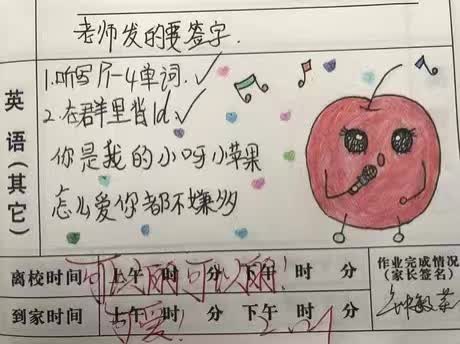 老师发的要签字.
英语(其它)
1.听写P1-4单词.✓
2.在群里背1d.✓
你是我的小呀小苹果
怎么爱你都不嫌多
离校时间 上午 时 分 下午 时 分
可以丽可以丽!
作业完成情况
(家长签名)
到家时间 上午 时 分 下午 时 分
可爱!